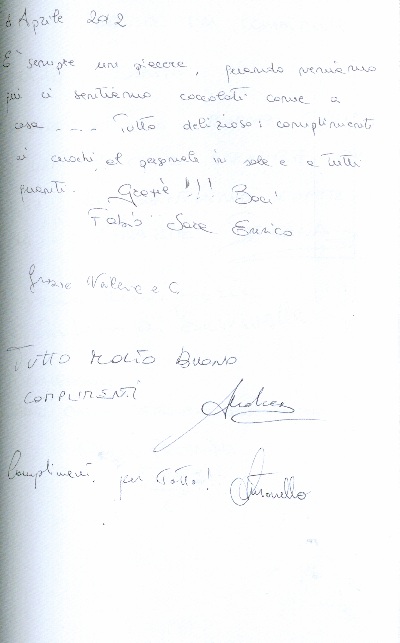 Aprile 2012
E' sempre un piacere, quando veniamo
qui ci sentiamo coccolati come a
casa.... Tutto delizioso: complimenti
ai cuochi al personale in sala e a tutti
quanti. Grazie!!! Baci
Fabio Sara Enrico
Grazie Valeria e C
TUTTO MOLTO BUONO
COMPLIMENTI Andrea
Complimenti per tutto! Antonello